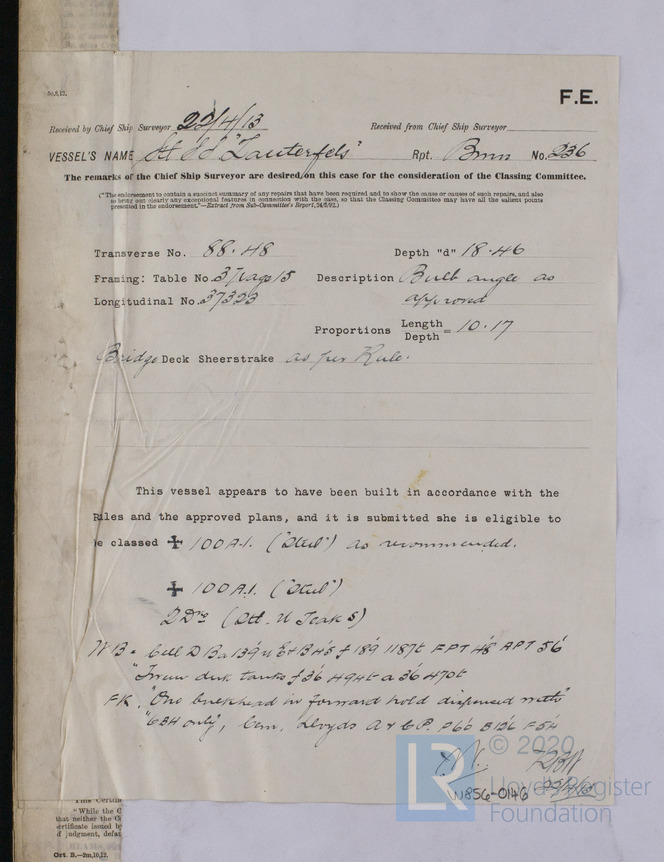 F.E.
Received by Chief Ship Surveyor 22/4/13 Received from Chief Ship Surveyor
VESSEL'S NAME "Lauterfels" Rpt. Bmn No. 236
The remarks of the Chief Ship Surveyor are desired on this case for the consideration of the Classing Committee.
("The endorsement to contain a succinct summary of any repairs that have been required and to show the cause or causes of such repairs, and also
to bring out clearly any exceptional features in connection with the case, so that the Classing Committee may have all the salient points
presented in the endorsement."—Extract from Sub-Committee's Report, 24/5/92.)
Transverse No. 88.48 Depth "d" 18.46
Framing: Table No. 3 Page 15 Description Bulb angle as
Longitudinal No. 37323 approved
Proportions Length/Depth = 10.17
Bridge Deck Sheerstrake as per Rule.
This vessel appears to have been built in accordance with the
Rules and the approved plans, and it is submitted she is eligible to
be classed ✠ 100A.1. ("Steel") as recommended.
✠ 100A.1. ("Steel")
2 Dks (Stl. & Teak S)
WB = Cell D Ba 139' u E&B 45' f 189' 1187t FPT 48t APT 56t
deck tanks f 36' 494t a 36' 470t
FK, "One bulkhead in forward hold dispensed with"
"6BH only", Cem, Lloyds A & CP. P66' B136' F54'
22/4/13
W856-0146
LR © 2020
Lloyd's Register
Foundation
This Certif
"While the C
that neither the C
ertificate issued by
f judgment, defau
Ort. B.—2m,10,12.